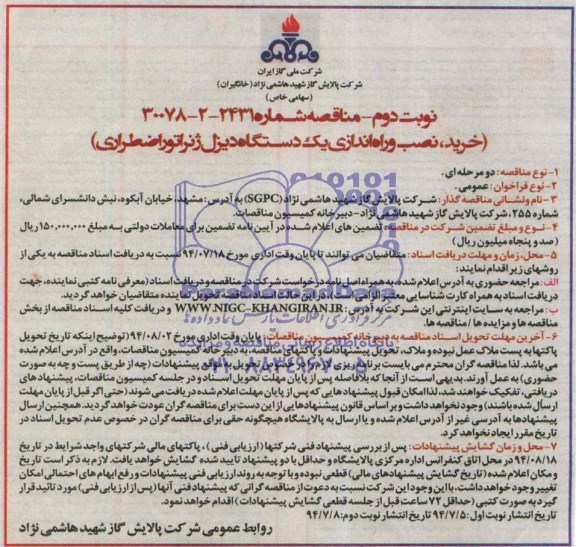 شرکت ملی گاز ایران
شرکت پالایش گاز شهید هاشمی نژاد (خانگیران)
(سهامی خاص)
نوبت دوم - مناقصه شماره ۲۴۳۱-۲-۳۰۰۷۸
(خرید، نصب و راه اندازی یک دستگاه دیزل ژنراتور اضطراری)
۱- نوع مناقصه: دو مرحله ای.
۲- نوع فراخوان: عمومی.
۳- نام ونشانی مناقصه گذار: شرکت پالایش گاز شهید هاشمی نژاد (SGPC) به آدرس: مشهد، خیابان آبکوه، نبش دانشسرای شمالی،
شماره ۲۵۵، شرکت پالایش گاز شهید هاشمی نژاد- دبیرخانه کمیسیون مناقصات.
۴- نوع و مبلغ تضمین شرکت در مناقصه: تضمین های اعلام شده در آیین نامه تضمین برای معاملات دولتی به مبلغ ۱۵۰,۰۰۰,۰۰۰ ریال
(صد و پنجاه میلیون ریال)
۵- محل، زمان و مهلت دریافت اسناد: متقاضیان می توانند تا پایان وقت اداری مورخ ۹۴/۰۷/۱۸ نسبت به دریافت اسناد مناقصه به یکی از
روشهای زیر اقدام نمایند:
الف: مراجعه حضوری به آدرس اعلام شده، به همراه اصل نامه درخواست شرکت در مناقصه و دریافت اسناد (معرفی نامه کتبی نماینده، جهت
دریافت اسناد به همراه کارت شناسایی معتبر الزامی است)، در این حالت اسناد مناقصه تحویل نماینده متقاضیان خواهد گردید.
ب: مراجعه به سایت اینترنتی این شرکت به آدرس: WWW.NIGC-KHANGIRAN.IR و دریافت کلیه اسناد مناقصه از بخش
مناقصه ها و مزایده ها / مناقصه ها.
۶- آخرین مهلت تحویل اسناد مناقصه به دبیرخانه کمیسیون مناقصات: پایان وقت اداری مورخ ۹۴/۰۸/۰۲ (توضیح اینکه تاریخ تحویل
پاکتها به پست ملاک عمل نبوده و ملاک، تحویل پیشنهادات و پاکتهای مناقصه، به دبیرخانه کمیسیون مناقصات، واقع در آدرس اعلام شده
می باشد. لذا مناقصه گران محترم می بایست برنامه ریزی لازم جهت تحویل به موقع پیشنهادات (چه از طریق پست و چه به صورت
حضوری) به عمل آورند. بدیهی است از آنجا که بلافاصله پس از پایان مهلت تحویل اسناد و در جلسه کمیسیون مناقصات، پیشنهادهای
دریافتی، تفکیک خواهند شد، لذا امکان قبول پیشنهادهایی که پس از پایان مهلت اعلام شده دریافت می شوند (حتی اگر قبل از پایان مهلت
ارسال شده باشند) وجود نخواهد داشت و بر اساس قانون پیشنهادهایی از این دست برای مناقصه گران عودت خواهد گردید. همچنین ارسال
پیشنهادها به آدرسی غیر از آدرس اعلام شده و یا ارسال به پالایشگاه هیچگونه حقی برای مناقصه گران در خصوص عدم تحویل اسناد در
تاریخ مقرر ایجاد نخواهد کرد.
۷- محل و زمان گشایش پیشنهادات: پس از بررسی پیشنهاد فنی شرکتها (ارزیابی فنی)، پاکتهای مالی شرکتهای واجد شرایط در تاریخ
۹۴/۰۸/۱۸ در محل اتاق کنفرانس اداره مرکزی پالایشگاه و حداقل با دو پیشنهاد تایید شده گشایش خواهد یافت. لازم به ذکر است تاریخ
و مکان اعلام شده (تاریخ گشایش پیشنهادهای مالی) قطعی نبوده و با توجه به روند ارزیابی فنی پیشنهادات و رفع ابهام های احتمالی امکان
تغییر وجود خواهد داشت، با این وجود این شرکت نسبت به دعوت از مناقصه گرانی که پیشنهاد فنی آنها (پس از ارزیابی فنی) مورد تائید قرار
گیرد به صورت کتبی (حداقل ۷۲ ساعت قبل از جلسه قطعی گشایش پیشنهادات) اقدام خواهد نمود.
تاریخ انتشار نوبت اول: ۹۴/۷/۵ تاریخ انتشار نوبت دوم: ۹۴/۷/۸
روابط عمومی شرکت پالایش گاز شهید هاشمی نژاد